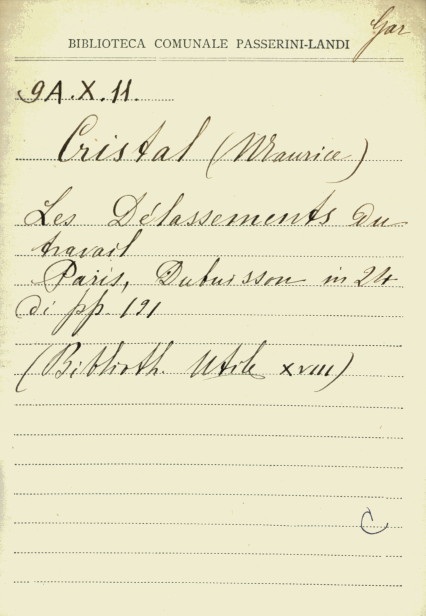 Gar
BIBLIOTECA COMUNALE PASSERINI-LANDI
9A.X.11.
Cristal (Maurice)
Les Délassements du
travail
Paris, Dubuisson in 24
di pp. 191
(Biblioth. Utile XVIII)
C